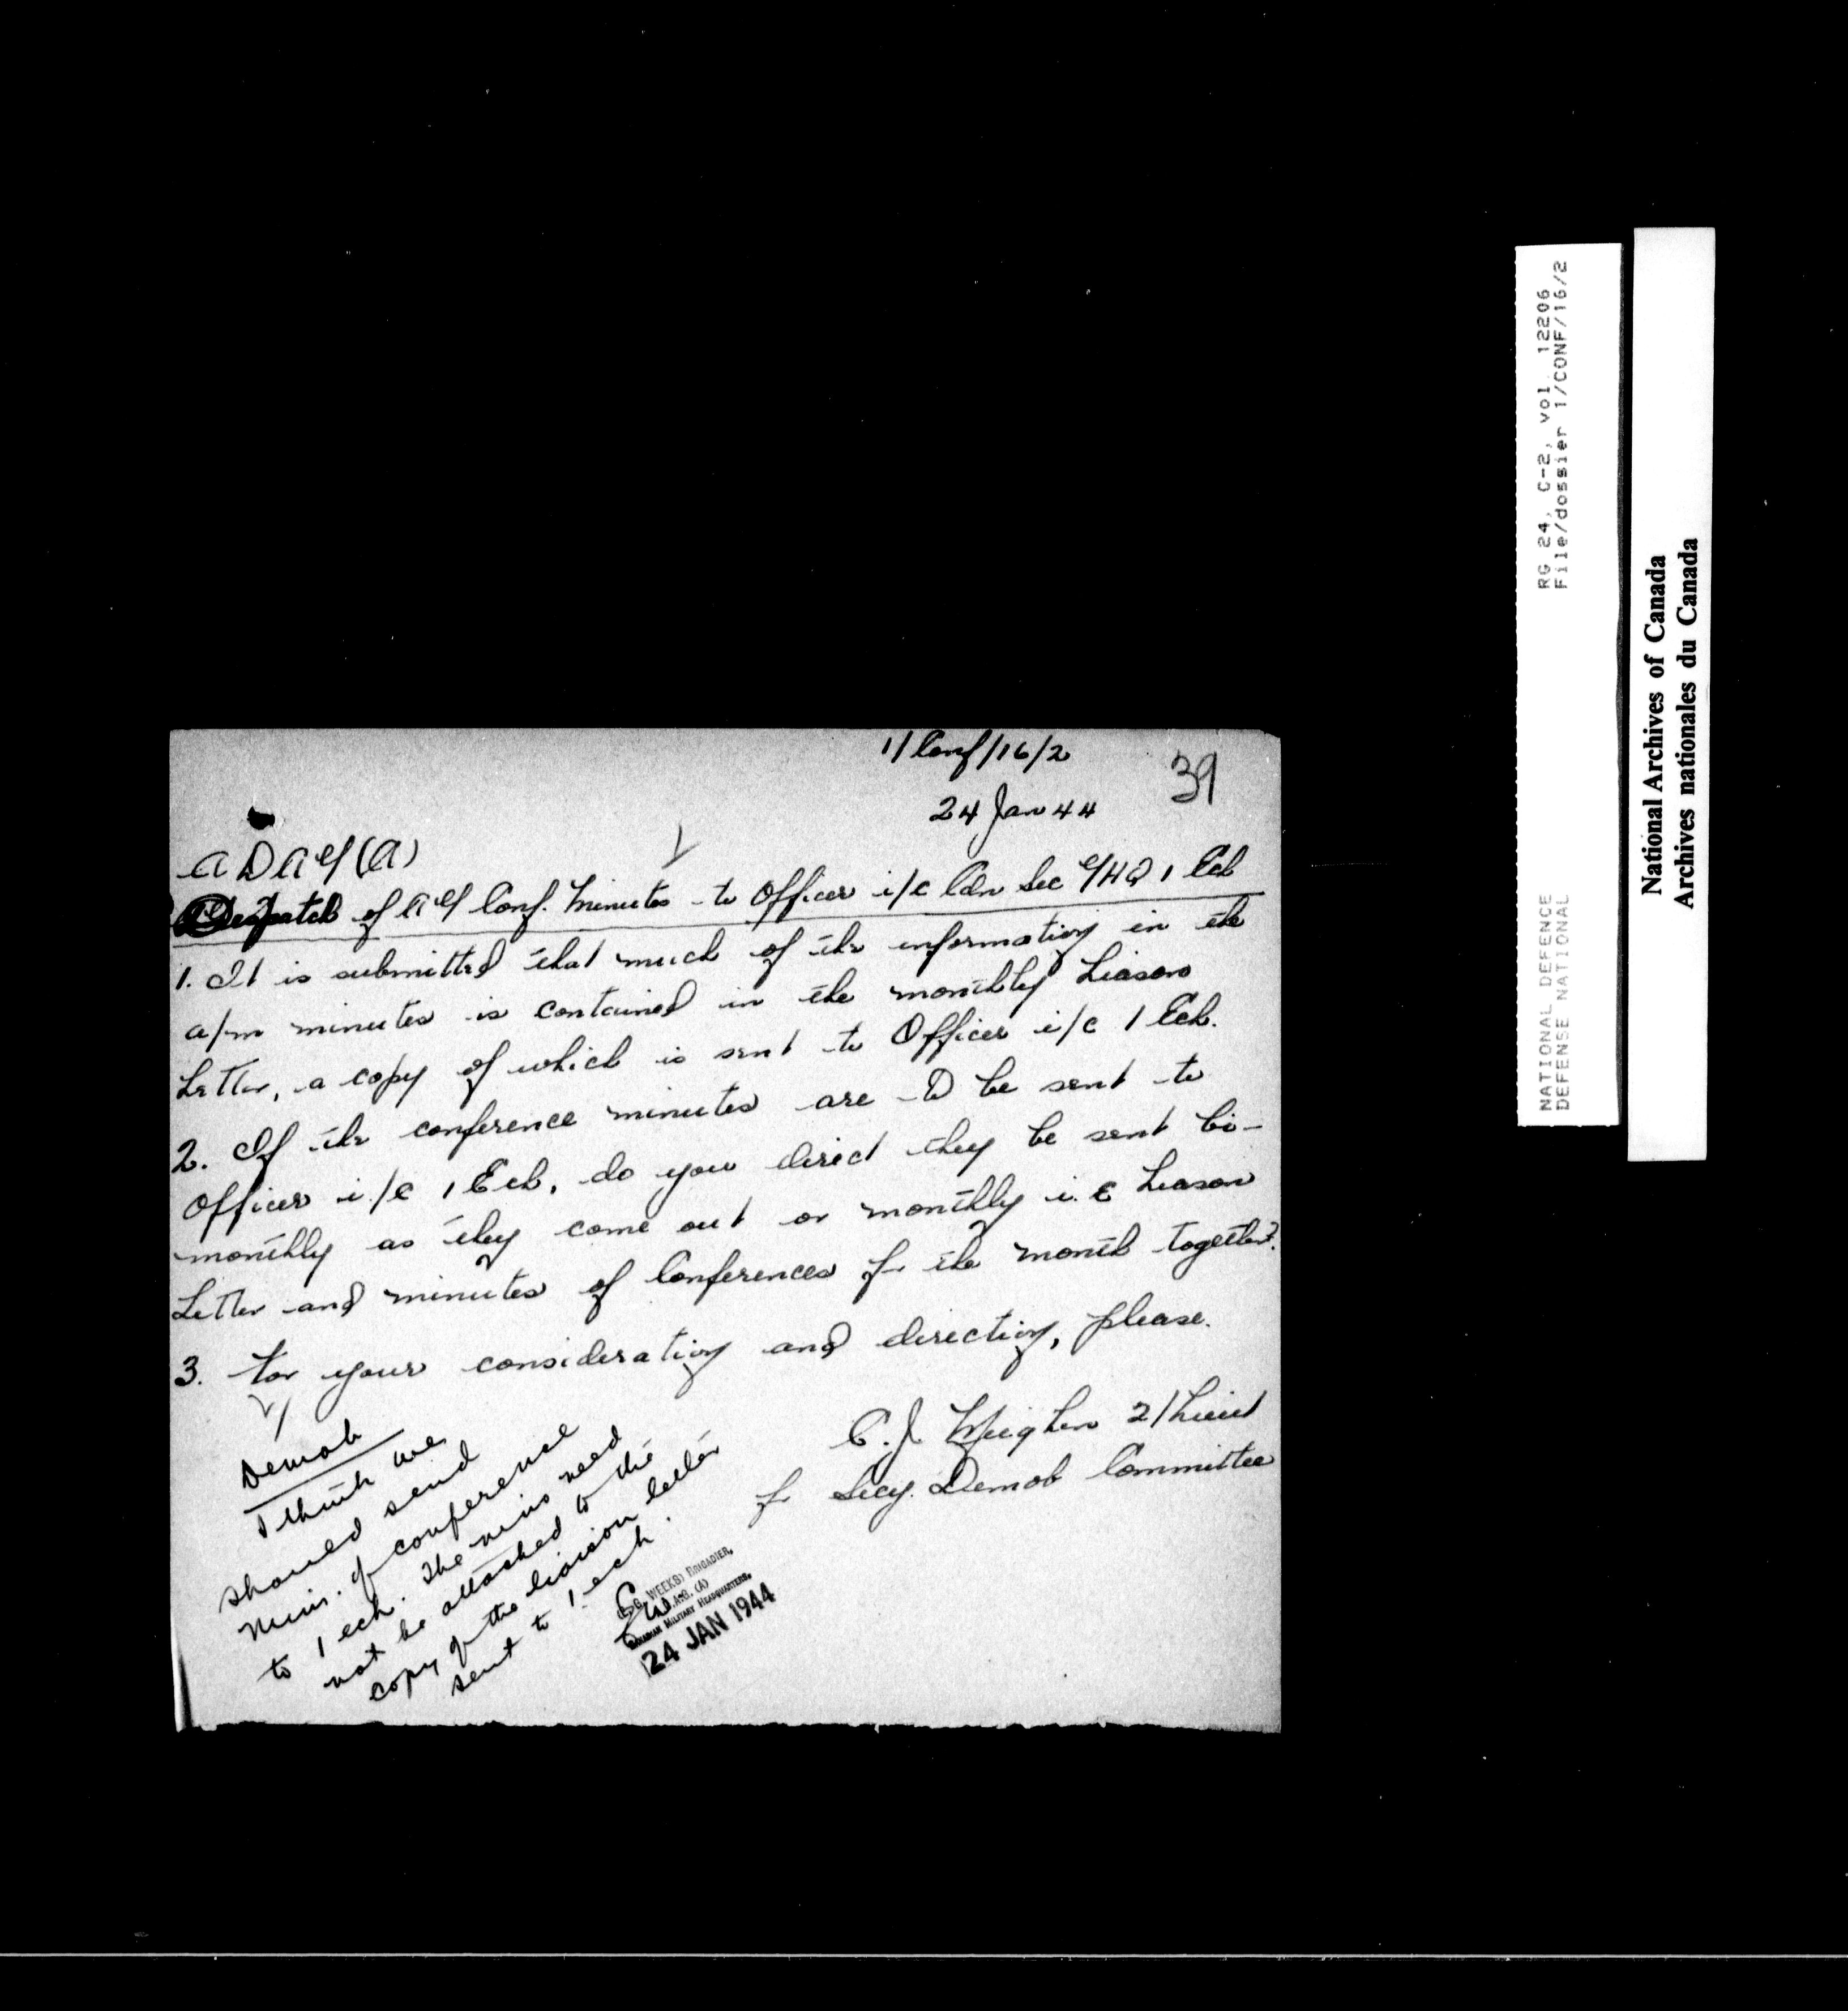 1/Conf/16/2
39
24 Jan 44
ADAG(A)
Despatch of AG Conf. Minutes to Officer i/c Cdn Sec GHQ 1 Ech
1. It is submitted that much of the information in the
a/m minutes is contained in the monthly Liason
Letter, a copy of which is sent to Officer i/c 1 Ech.
2. If the conference minutes are to be sent to
Officer i/c 1 Ech, do you direct they be sent bi-
monthly as they come out or monthly i.e Liason
Letter and minutes of Conferences for the month together?
3. For your consideration and direction, please.
C.J. Meighen 2/Lieut
for Secy. Demob Committee
Demob
I think we
should send
mins. of conference
to 1 ech. The mins need
not be attached to the
copy of the liaison letter
sent to 1 ech.
WEEKS) BRIGADIER,
D.A.G. (A)
CANADIAN MILITARY HEADQUARTERS,
24 JAN 1944
RG 24, C-2, vol. 12206
File/dossier 1/CONF/16/2
NATIONAL DEFENCE
DEFENSE NATIONAL
National Archives of Canada
Archives nationales du Canada